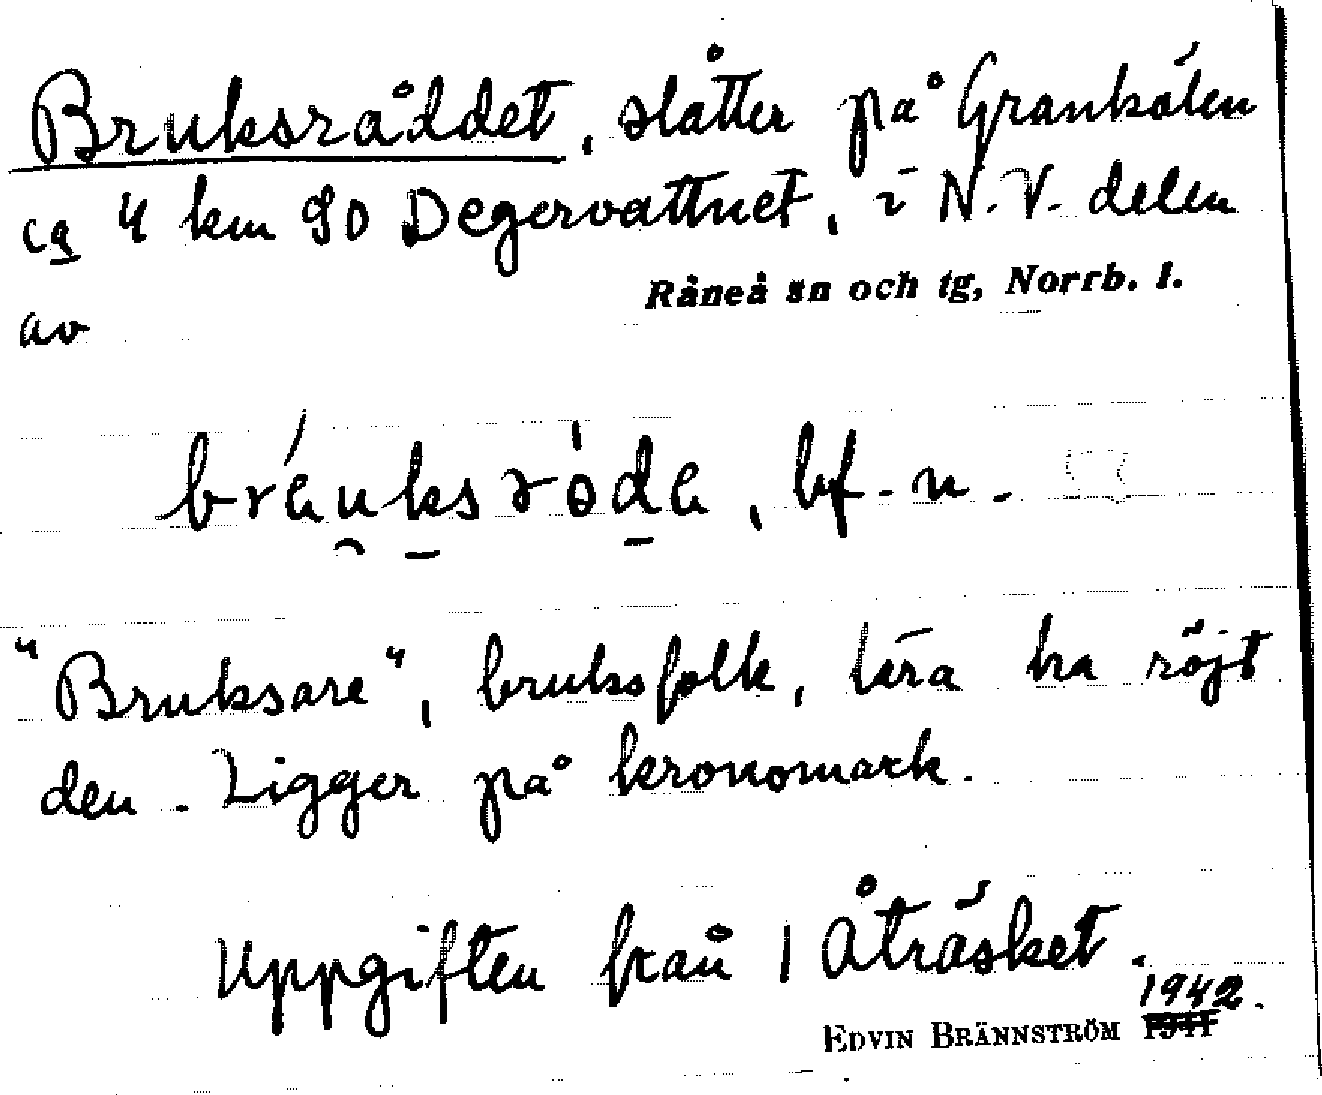 Bruksråddet, slåtter på Grankölen
ca 4 km SO Degervattnet, i N.V. delen
Råneå sn och tg, Norrb. l.
av
bf. n.
"Bruksare", bruksfolk, lära ha röjt
den. Ligger på kronomark.
Uppgiften från 1 Åträsket.
1942.
EDVIN BRÄNNSTRÖM 1941